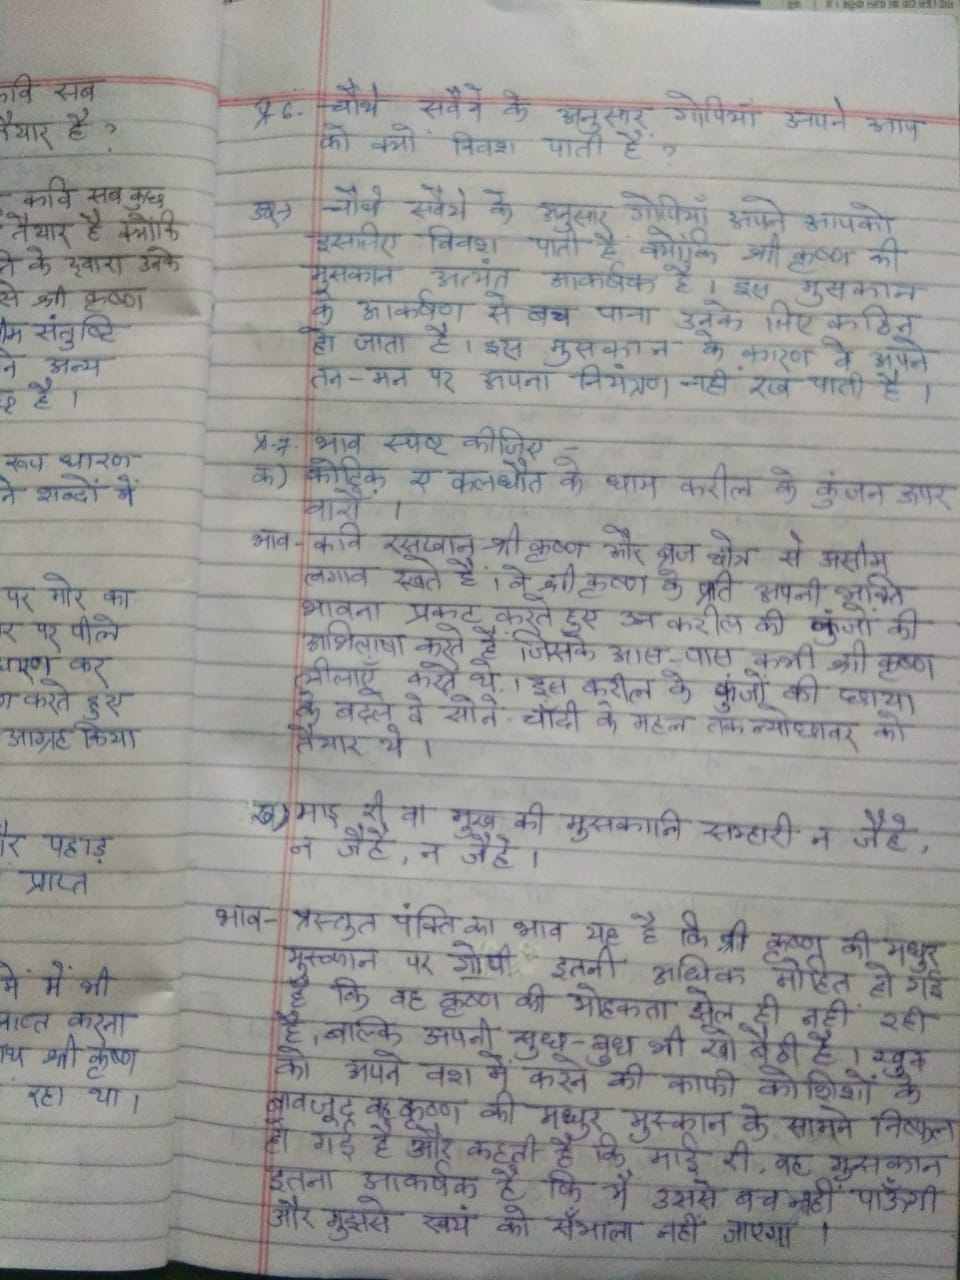 कवि सब
तैयार है ?
कवि सब कुछ
तैयार है क्योंकि
के द्वारा उनके
से श्री कृष्ण
संतुष्टि
अन्य
है ।
रूप धारण
ने शब्दों में
पर मोर का
पर पीले
धारण कर
करते हुए
आग्रह किया
और पहाड़
प्राप्त
में भी
प्राप्त करना
साथ श्री कृष्ण
रहा था ।
प्र 6. चौथे सवैये के अनुसार गोपियाँ अपने आप
को क्यों विवश पाती हैं ?
उत्तर) चौथे सवैये के अनुसार गोपियाँ अपने आपको
इसलिए विवश पाती है क्योंकि श्री कृष्ण की
मुसकान अत्यंत आकर्षक है । इस मुसकान
के आकर्षण से बच पाना उनके लिए कठिन
हो जाता है । इस मुसकान के कारण वे अपने
तन-मन पर अपना नियंत्रण नहीं रख पाती है ।
प्र-7. भाव स्पष्ट कीजिए -
क) कोटिक ए कलधौत के धाम करील के कुंजन ऊपर
वारौं ।
भाव- कवि रसखान श्री कृष्ण और ब्रज क्षेत्र से असीम
लगाव रखते हैं । वे श्री कृष्ण के प्रति अपनी भक्ति
भावना प्रकट करते हुए उन करील की कुंजों की
अभिलाषा करते हैं जिसके आस-पास कभी श्री कृष्ण
लीलाएँ करते थे । इस करील के कुंजों की छाया
के बदले वे सोने-चाँदी के महल तक न्योछावर को
तैयार थे ।
ख) माइ री वा मुख की मुसकानि सम्हारी न जैहै,
न जैहै, न जैहै ।
भाव- प्रस्तुत पंक्ति का भाव यह है कि श्री कृष्ण की मधुर
मुस्कान पर गोपी इतनी अधिक मोहित हो गई
है कि वह कृष्ण की मोहकता झेल ही नहीं रही
है, बल्कि अपनी सुध-बुध भी खो बैठी है । खुद
को अपने वश में करने की काफी कोशिशों के
बावजूद वह कृष्ण की मधुर मुस्कान के सामने निष्फल
हो गई है और कहती है कि माई री, वह मुसकान
इतना आकर्षक है कि मैं उससे बच नहीं पाऊँगी
और मुझसे स्वयं को सँभाला नहीं जाएगा ।